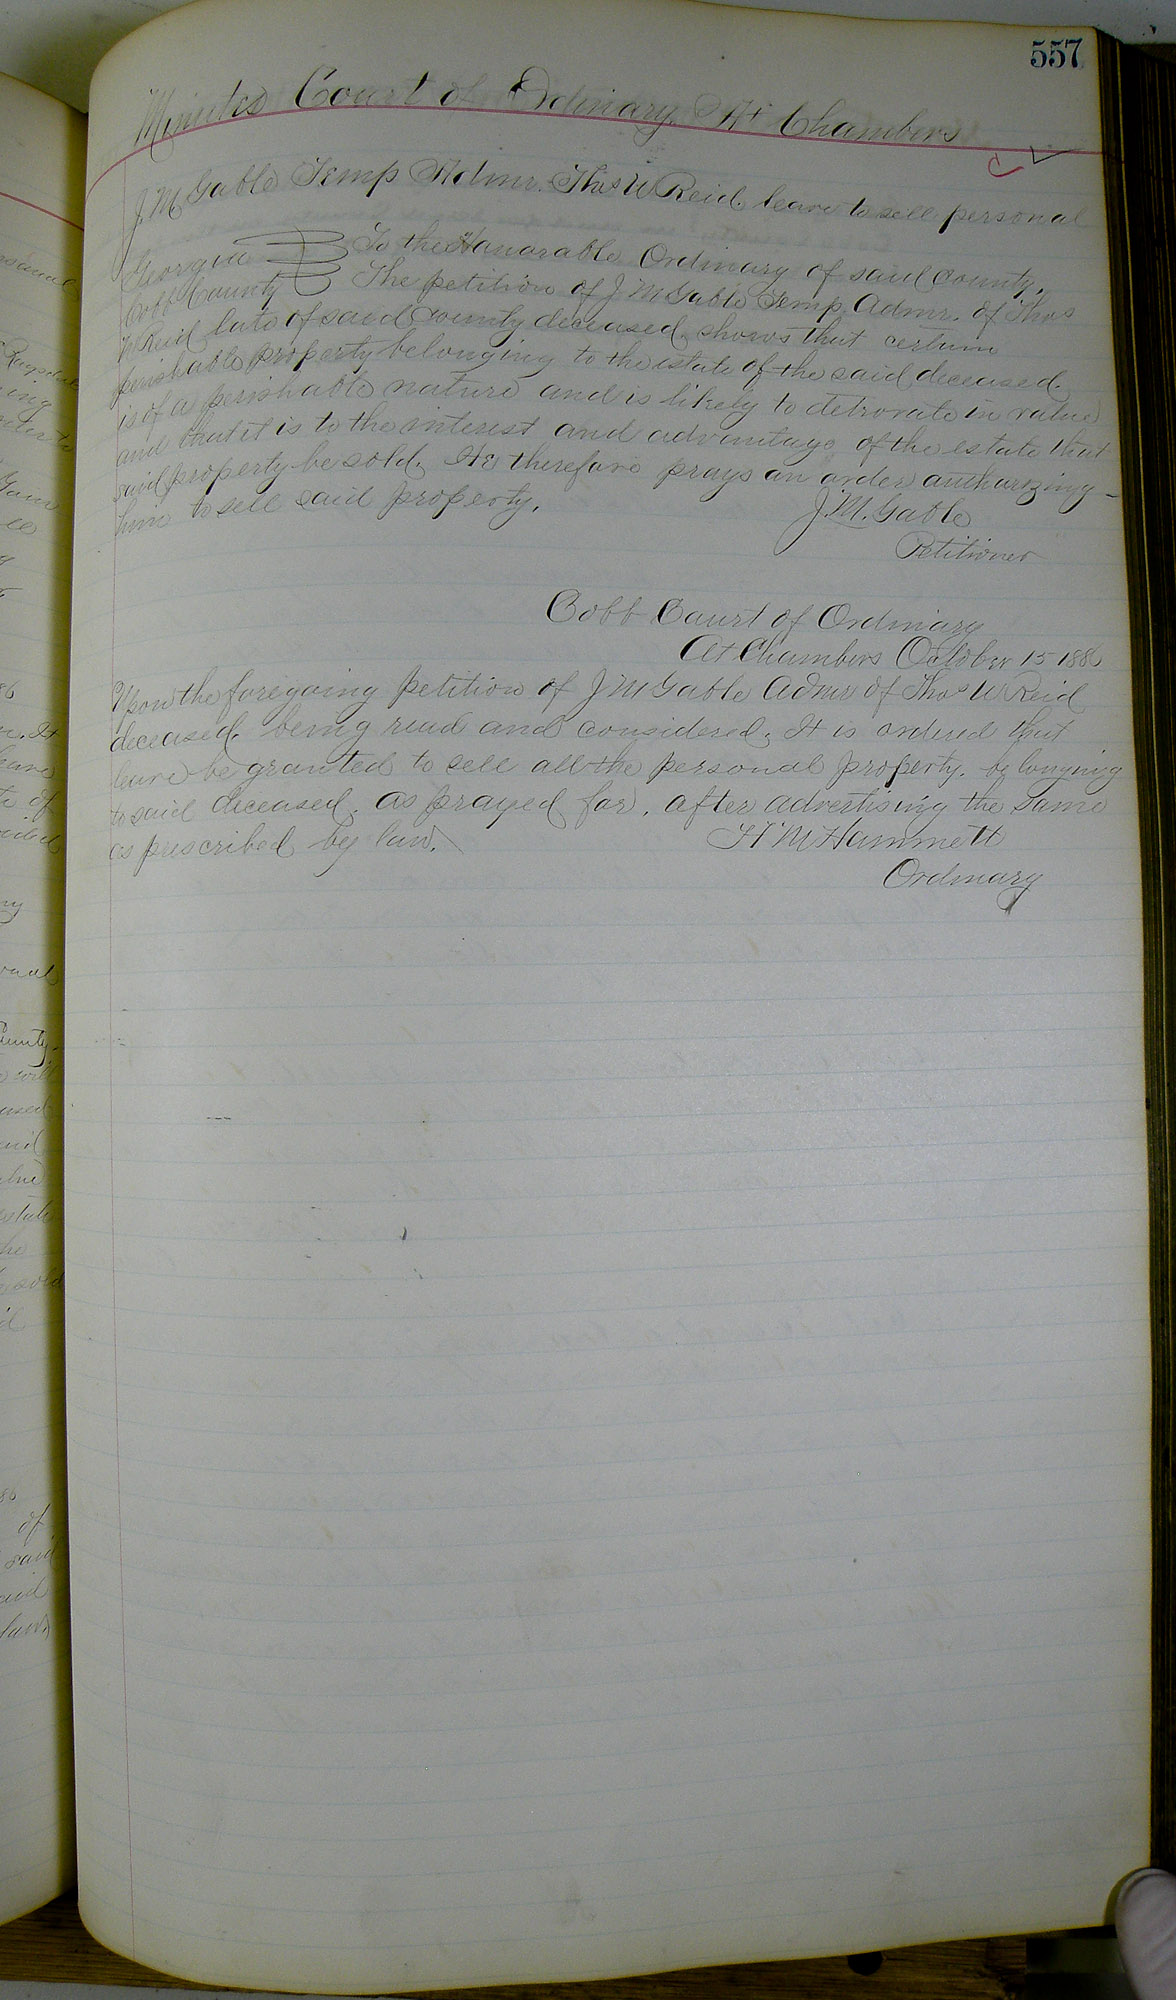 557
Minutes Court of Ordinary At Chambers
J. M. Gable Temp Admr. Thos W Reid leave to sell personal
Georgia To the Honorable Ordinary of said County.
Cobb County The petition of J M Gable Temp Admr. of Thos
W Reid late of said County deceased, shows that certain
perishable property belonging to the estate of the said deceased.
is of a perishable nature and is likely to detrorate in value
and that it is to the interest and advantage of the estate that
said property be sold. He therefore prays an order authorizing
him to sell said property.
J. M. Gable
Petitioner
Cobb Court of Ordinary
At Chambers October 15 1886
Upon the foregoing petition of J M Gable Admr of Thos W Reid
deceased. being read and considered. It is ordered that
leave be granted to sell all the personal property. belonging
to said deceased. as prayed for. after advertising the same
as prescribed by law.
H M Hammett
Ordinary